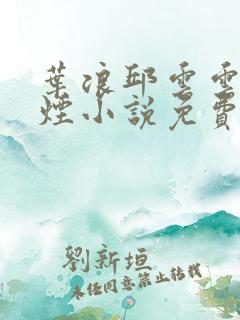 葉浪邱雲雲
煙小說免費
劉新垣
未經同意禁止轉載